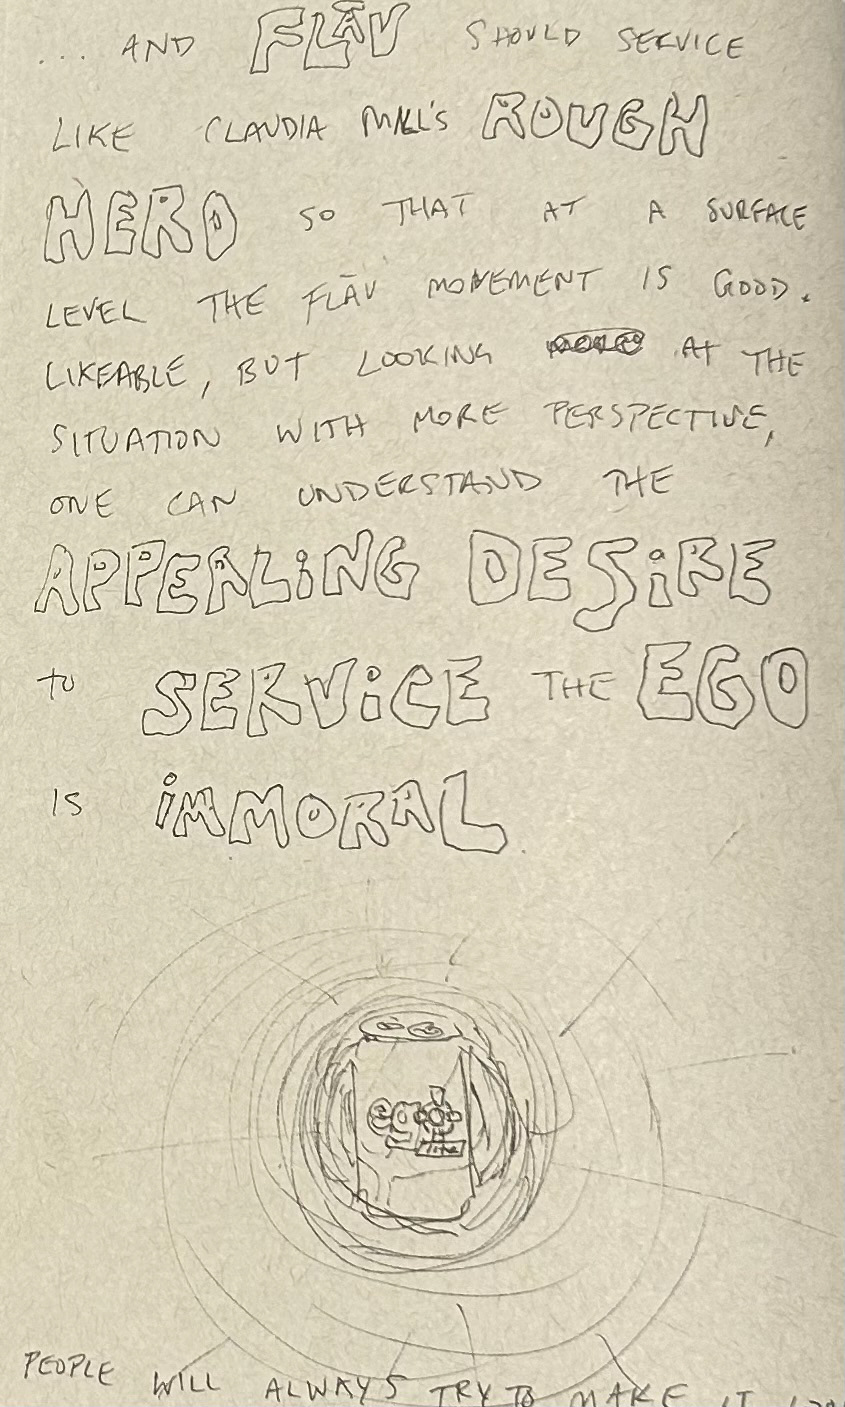 ... AND FLĀV SHOULD SERVICE
LIKE CLAUDIA MILL'S ROUGH
HERO SO THAT AT A SURFACE
LEVEL THE FLĀV MOVEMENT IS GOOD.
LIKEABLE, BUT LOOKING AT THE
SITUATION WITH MORE PERSPECTIVE,
ONE CAN UNDERSTAND THE
APPEALING DESIRE
TO SERVICE THE EGO
IS IMMORAL.
ego
PEOPLE WILL ALWAYS TRY TO MAKE IT